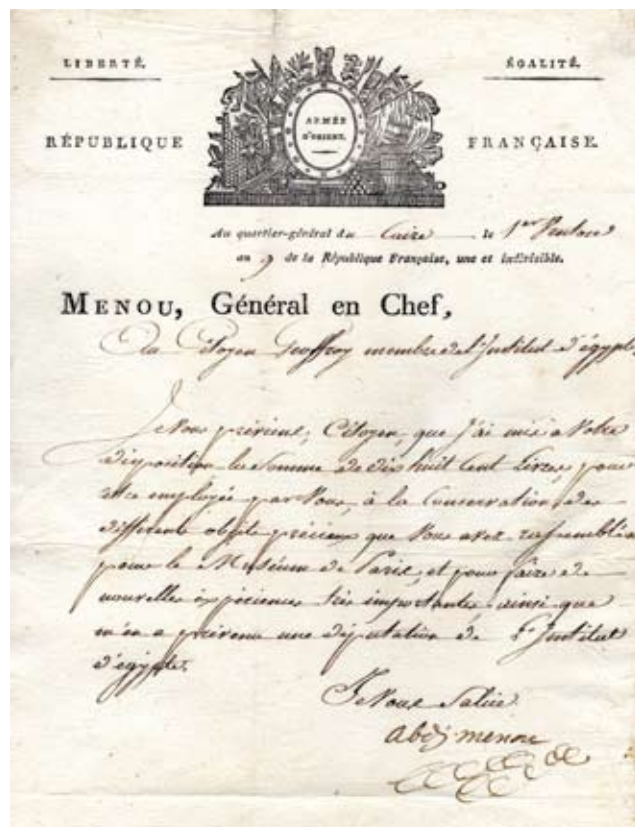 LIBERTÉ. ÉGALITÉ.
ARMÉE
D'ORIENT.
RÉPUBLIQUE FRANÇAISE.
Au quartier-général du Caire le 1er Ventose
an 9 de la République Française, une et indivisible.
MENOU, Général en Chef,
Au Citoyen Geoffroy membre de l'Institut d'égypte
Je Vous préviens, Citoyen, que j'ai mis a Votre
disposition la Somme de dix huit Cent Livres, pour
etre employée par Vous, à la Conservation des
differents objets précieux que Vous avez rassemblés
pour le Muséum de Paris, et pour faire de
nouvelles expériences très importantes, ainsi que
m'en a prévenu une députation de l'Institut
d'égypte.
Je Vous Salue
abdj. menou